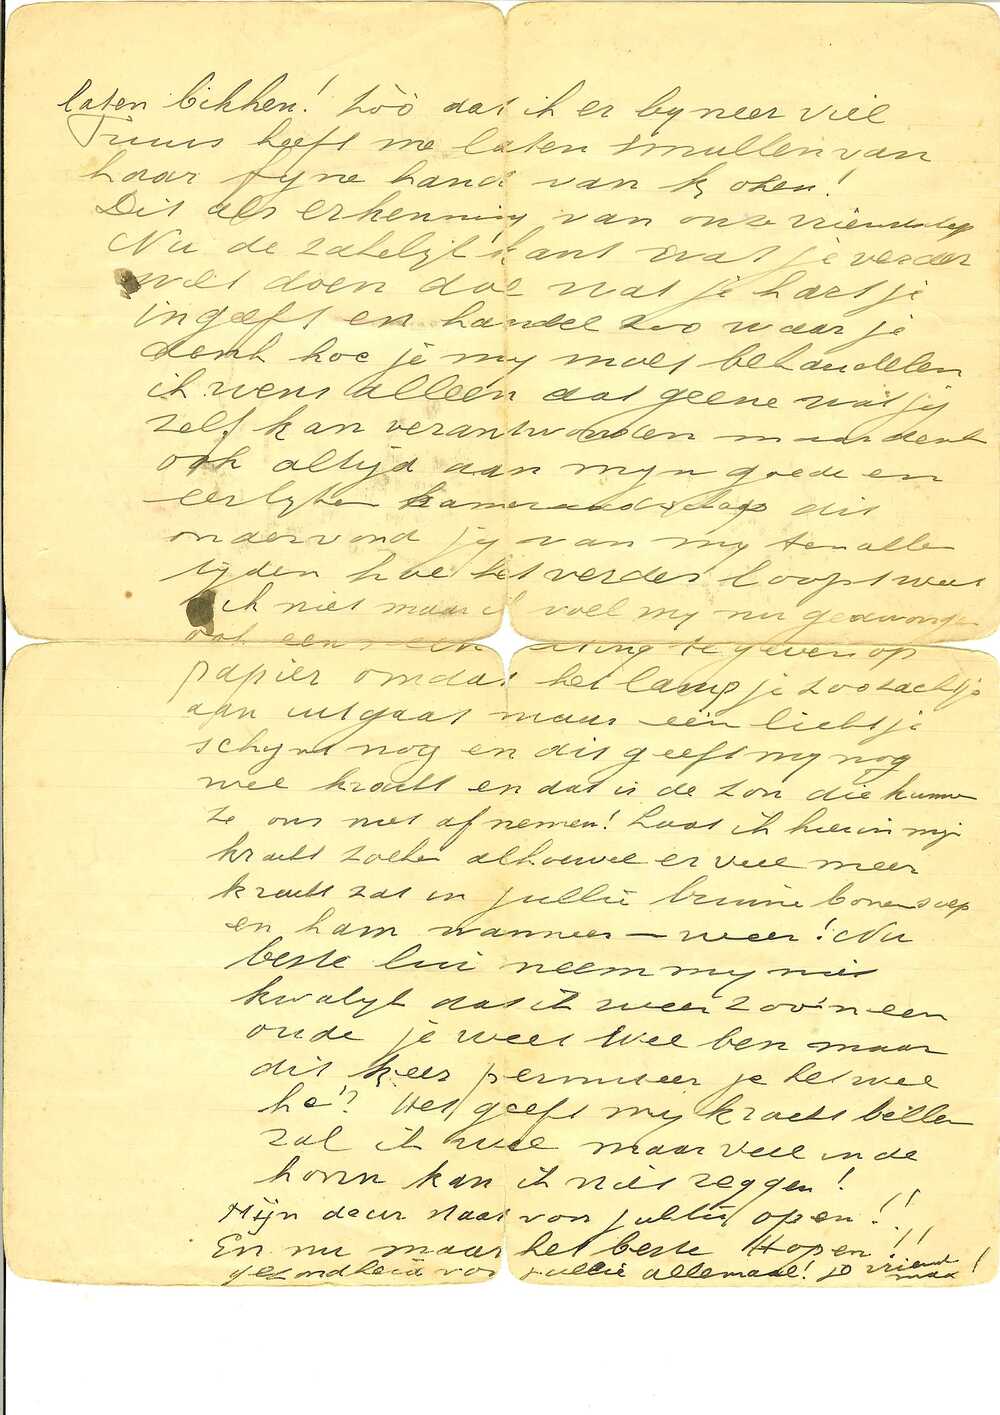 laten bikken! Zóó dat ik er by neer viel
Truus heeft me laten smullen van
haar fyne hand van koken!
Dit als erkenning van onze vriendschap
Nu de zakelyk kant wat je verder
wil doen doe wat je hartje
ingeeft en handel zoo waar je
denk hoe je my moet behandelen
ik wens alleen dat geene wat jy
zelf kan verantworden maar denk
ook altijd aan myn goede en
eerlyke kameraadschap dit
ondervond jy van my ten alle
tyden hoe het verder loopt weet
ik niet maar ik voel my nu gedwongen
ook eens een te geven op
papier omdat het lampje zoo zachtjes
aan uitgaat maar een lichtje
schynt nog en dit geeft my nog
wel kracht en dat is de zon die kunnen
ze ons niet af nemen! Laat ik hierin myn
kracht zoeken alhouwel er veel meer
kracht zat in jullie bruine bonensoep
en ham wanneer — weer! Nu
beste lui neem my niet
kwalyk dat ik weer zoo'n een
oude je weet wel ben maar
dit keer permiteer je het wel
hé!? Het geeft mij kracht billen
zal ik wel maar veel in de
horen kan ik niet zeggen!
Mijn deur staat voor jullie open!!
En nu maar het beste Hopen!!!
gezondheid voor jullie allemaal! je vriend
max!